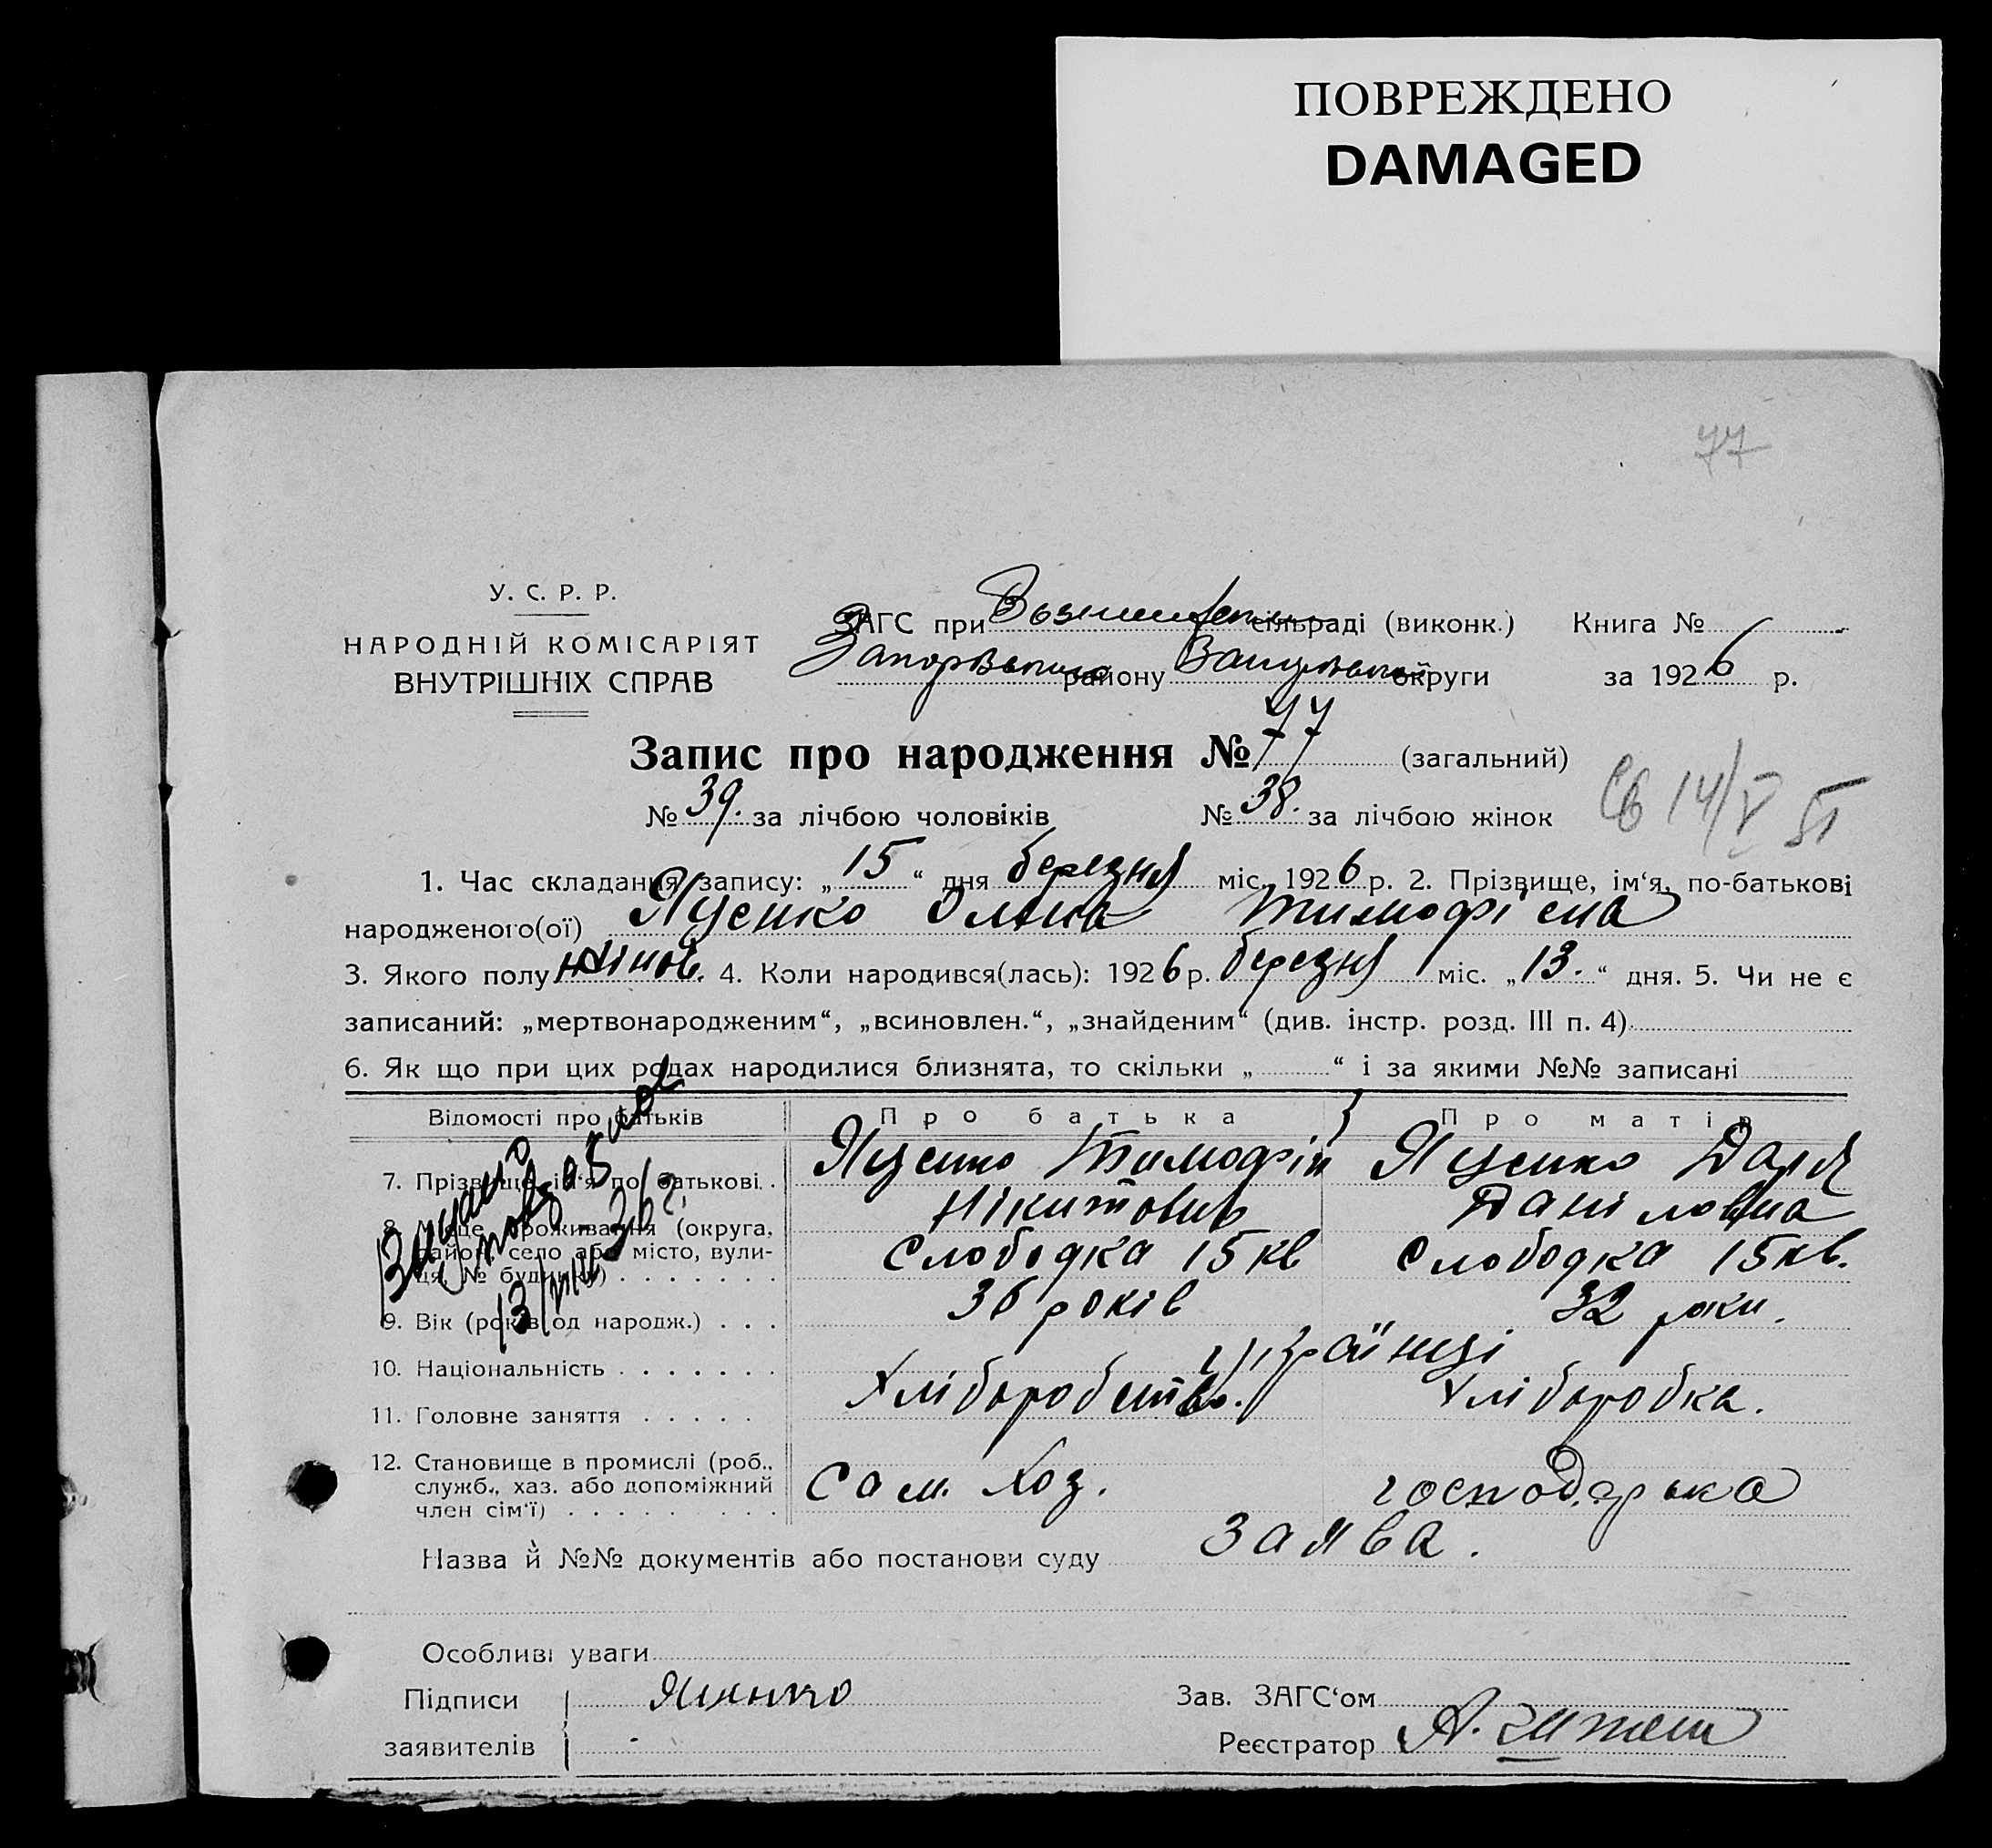 ПОВРЕЖДЕНО
DAMAGED
77
У. С. Р. Р.
НАРОДНІЙ КОМІСАРІЯТ
ВНУТРІШНІХ СПРАВ
ЗАГС при сільраді (виконк.) Книга №
району округи за 1926 р.
Запис про народження № 77 (загальний)
№ 39. за лічбою чоловіків № 38. за лічбою жінок
14/V 51
1. Час складання запису: „15“ дня березня міс. 1926 р. 2. Прізвище, ім‘я, по-батькові
народженого(ої) Яценко Олена Тимофієна
3. Якого полу жінов. 4. Коли народився(лась): 1926 р. березня міс. „13.“ дня. 5. Чи не є
записаний: „мертвонародженим“, „всиновлен.“, „знайденим“ (див. інстр. розд. III п. 4)
6. Як що при цих родах народилися близнята, то скільки „ “ і за якими №№ записані
Відомості про батьків Про батька Про матір
7. Прізвище, ім‘я по батькові. Яценко Тимофій Яценко Дарʼя
Нікитовив Даніловна
8. Місце проживання (округа, район, село або місто, вули-
ця, № будинку) Слободка 15 кв Слободка 15 кв.
9. Вік (років од народж.) 36 років 32 роки.
10. Національність українці
11. Головне заняття Хліборобство. Хліборобка.
12. Становище в промислі (роб.,
служб., хаз. або допоміжний Сам. Хоз. господарька
член сім‘ї)
Назва й №№ документів або постанови суду Заява.
Особливі уваги
Підписи Зав. ЗАГС‘ом
заявителів Реєстратор А.